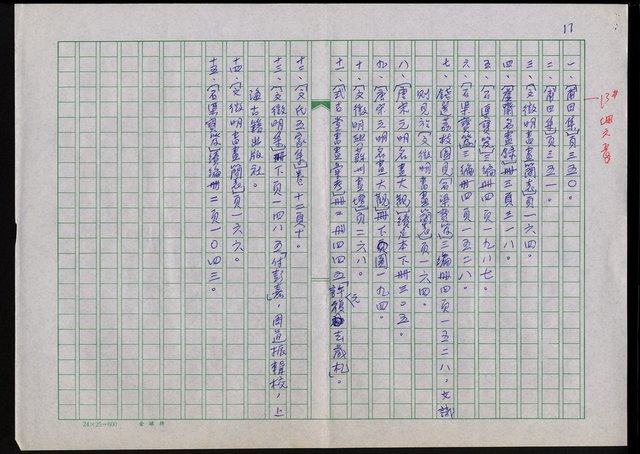 17
一、《莆田集》頁三五〇。
二、《莆田集》頁三五一。
三、《文徵明書畫簡表》頁一六四。
四、《 齋名畫錄》冊三頁三一八。
五、《石渠寶笈》三編冊四頁一九八七。
六、《石渠寶笈》三編冊四頁一五二八。
七、 《石渠寶笈》三編冊四頁一五二八,文誠
則見於《文徵明書畫簡表》頁一六四。
八、《唐宋元明名畫大觀》續 本下冊三〇五。
九、《唐宋元明名畫大觀》冊下圖一九四。
十、《文徵明與蘇州畫壇》頁二六八。
十一、《式古堂書畫彙考》冊二冊四四五 元 去歲札。
十二、《文氏五家集》卷十二頁十。
十三、《文徵明集》冊下頁一四八五「付彭嘉」,周道振輯校,上
海古籍出版社。
十四、《文徵明書畫簡表》頁一六六。
十五、《石渠寶笈》續編冊二頁一〇四三。
24×25=600